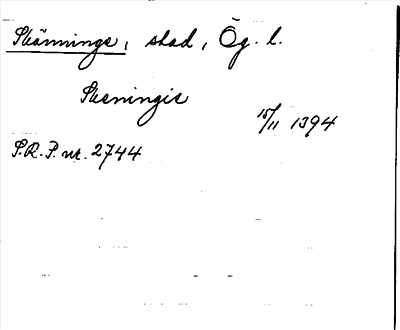 Skänninge, stad, Ög. l.
Skeningie
15/11 1394
S.R.P. nr. 2744